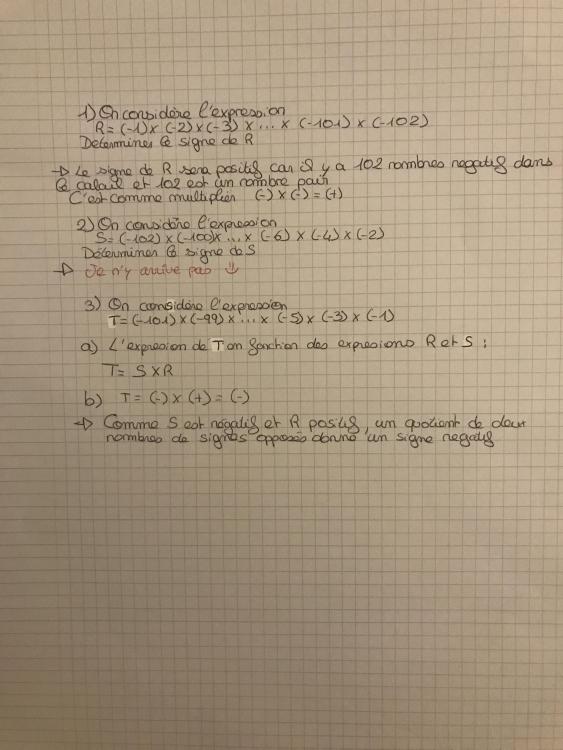 1) On considère l'expression
R = (-1) x (-2) x (-3) x ... x (-101) x (-102)
Determiner le signe de R
→ Le signe de R sera positif car il y a 102 nombres negatif dans
le calcul et 102 est un nombre pair
C'est comme multiplier (-) x (-) = (+)
2) On considère l'expression
S = (-102) x (-100) x ... x (-6) x (-4) x (-2)
Déterminer le signe de S
→ Je n'y arrive pas ↓
3) On considère l'expression
T = (-101) x (-99) x ... x (-5) x (-3) x (-1)
a) L'expresion de T en fonction des expresions R et S :
T = S x R
b) T = (-) x (+) = (-)
→ Comme S est négatif et R positif, un quotient de deux
nombres de signes opposés donne un signe negatif